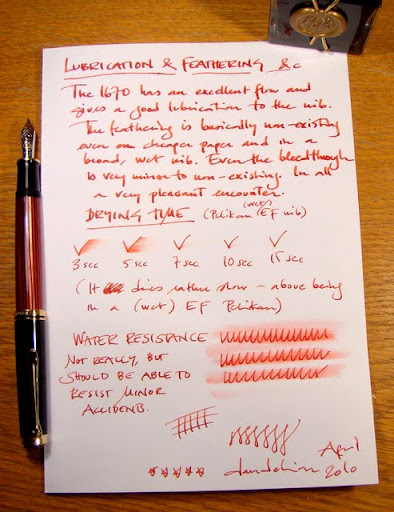 LUBRICATION & FEATHERING &c
The 1670 has an excellent flow and
gives a good lubrication to the nib.
The feathering is basically non-existing
even on cheaper paper and in a
broad, wet nib. Even the bleedthrough
is very minor to non-existing. In all
a very pleasant encounter.
DRYING TIME (Pelikan (wet) EF nib)
3 sec 5 sec 7 sec 10 sec 15 sec
(It dries rather slow – above being
in a (wet) EF Pelikan)
WATER RESISTANCE
NOT REALLY, BUT
SHOULD BE ABLE TO
RESIST MINOR
ACCIDENTS.
April
2010